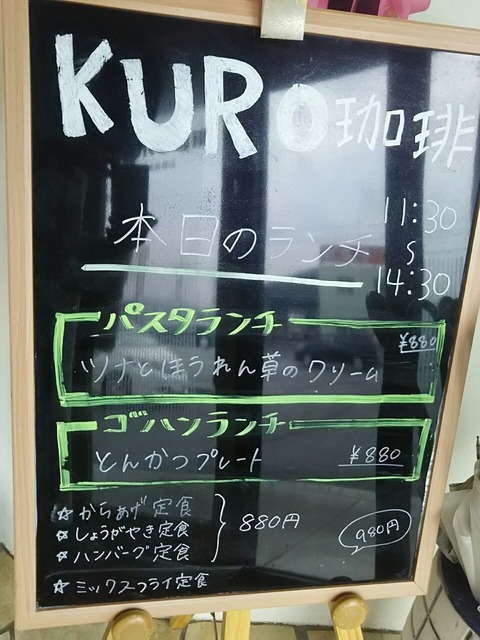 KURO珈琲
本日のランチ
11:30
S
14:30
パスタランチ
¥880
ツナとほうれん草のクリーム
ゴハンランチ
とんかつプレート ¥880
☆からあげ定食
☆しょうがやき定食
☆ハンバーグ定食
880円
980円
☆ミックスフライ定食